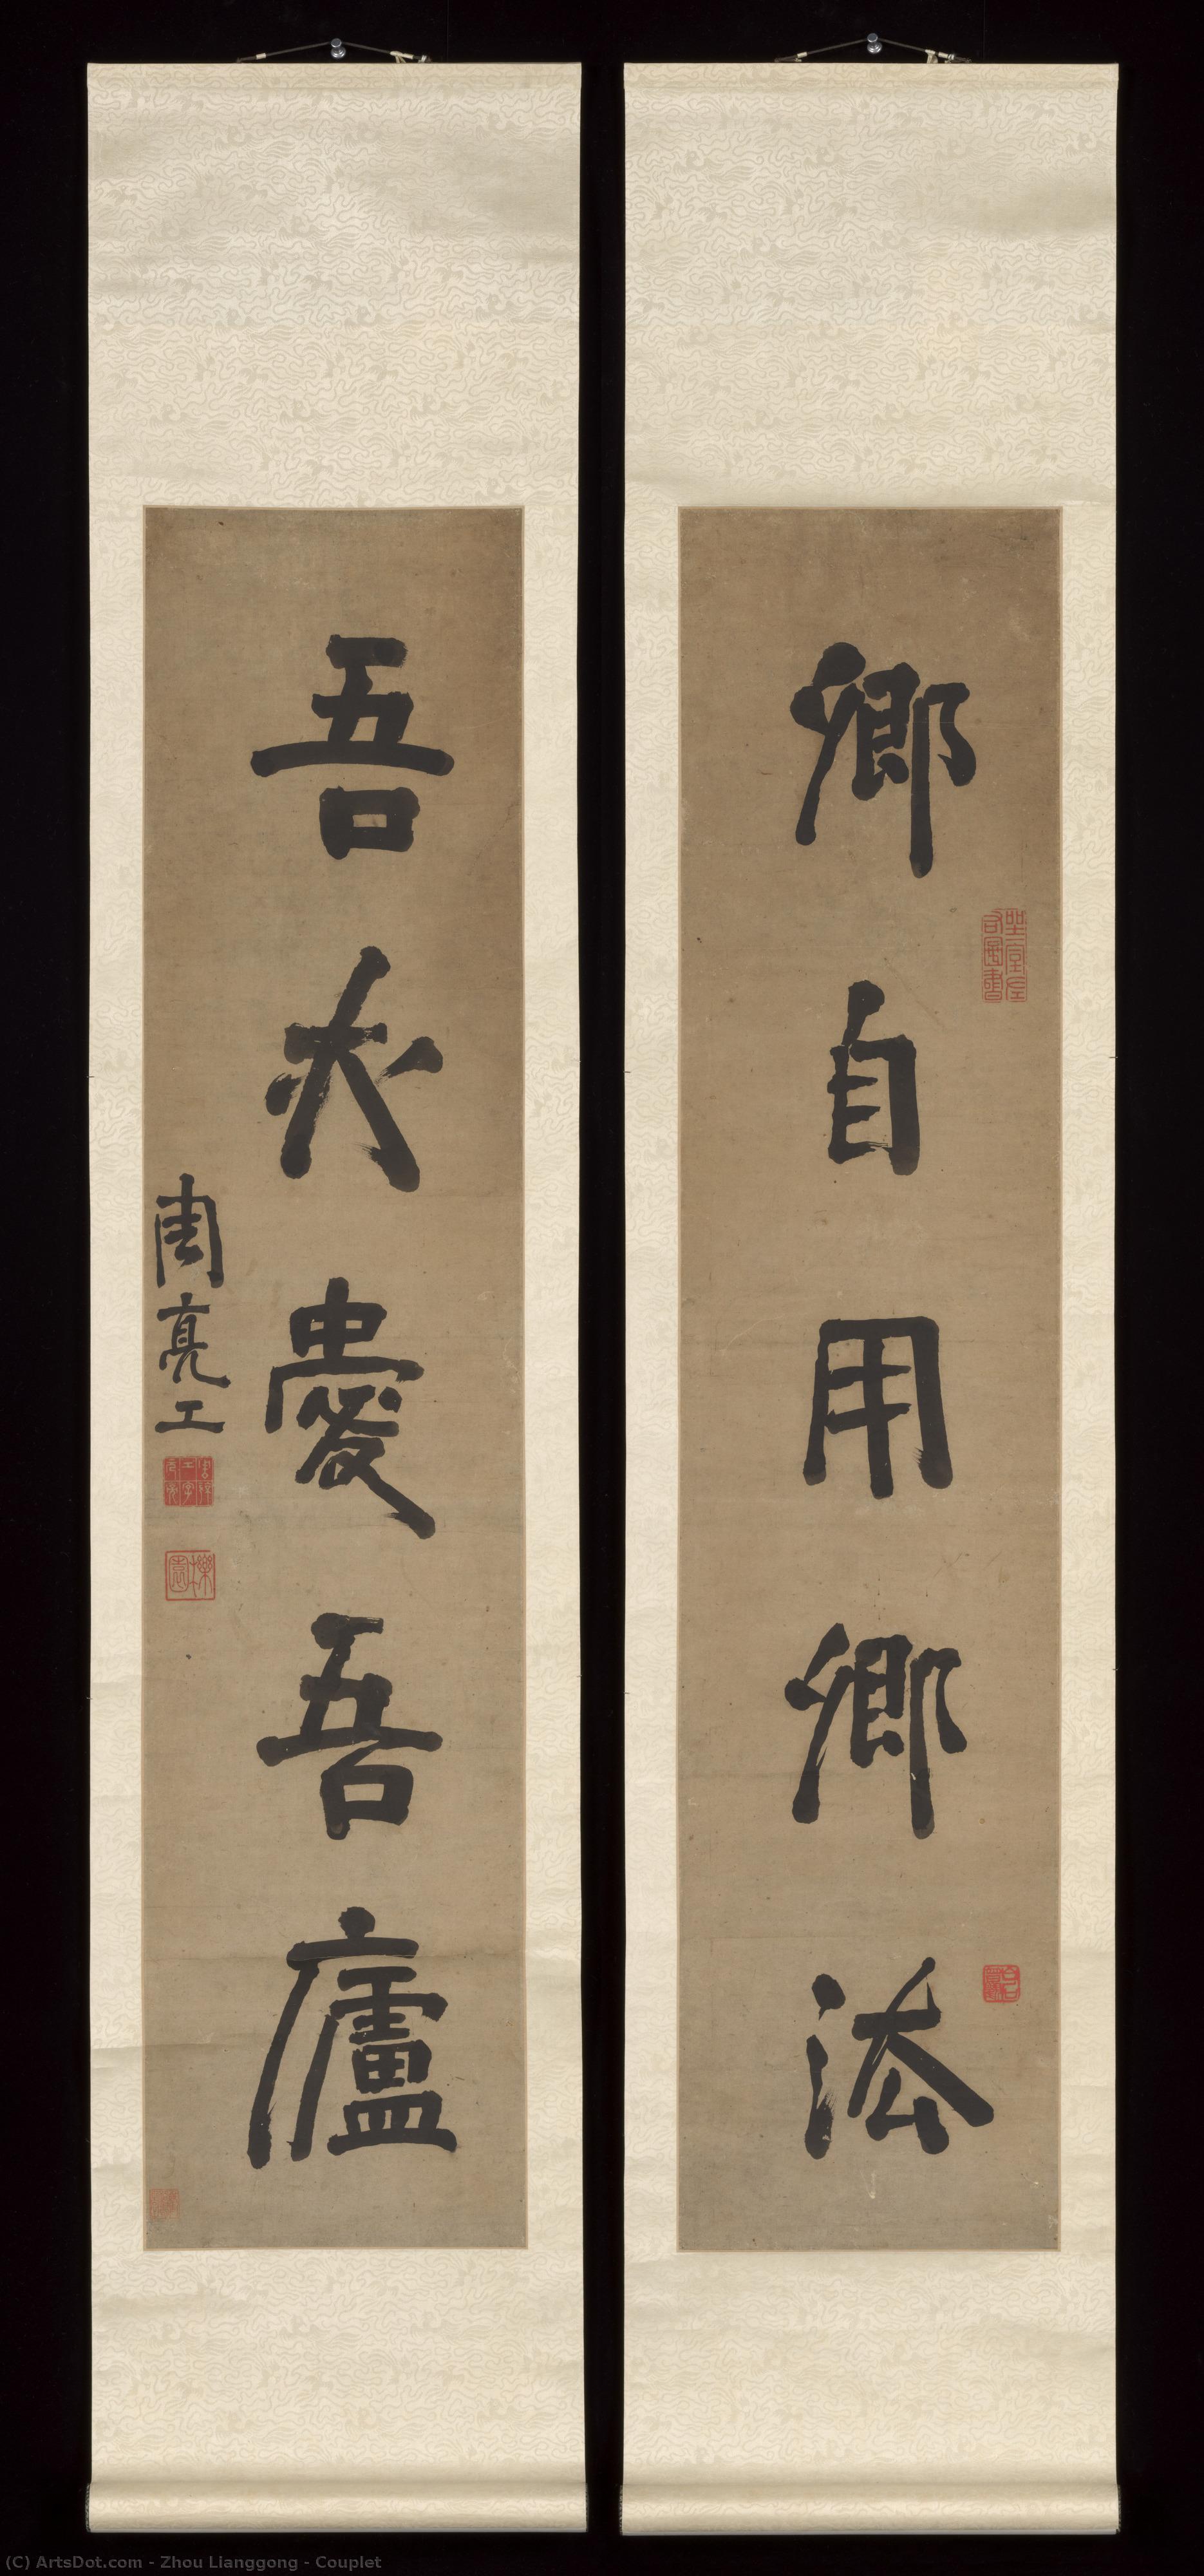 卿自用卿法
吾亦愛吾廬
周亮工
(C) ArtsDot.com - Zhou Lianggong - Couplet